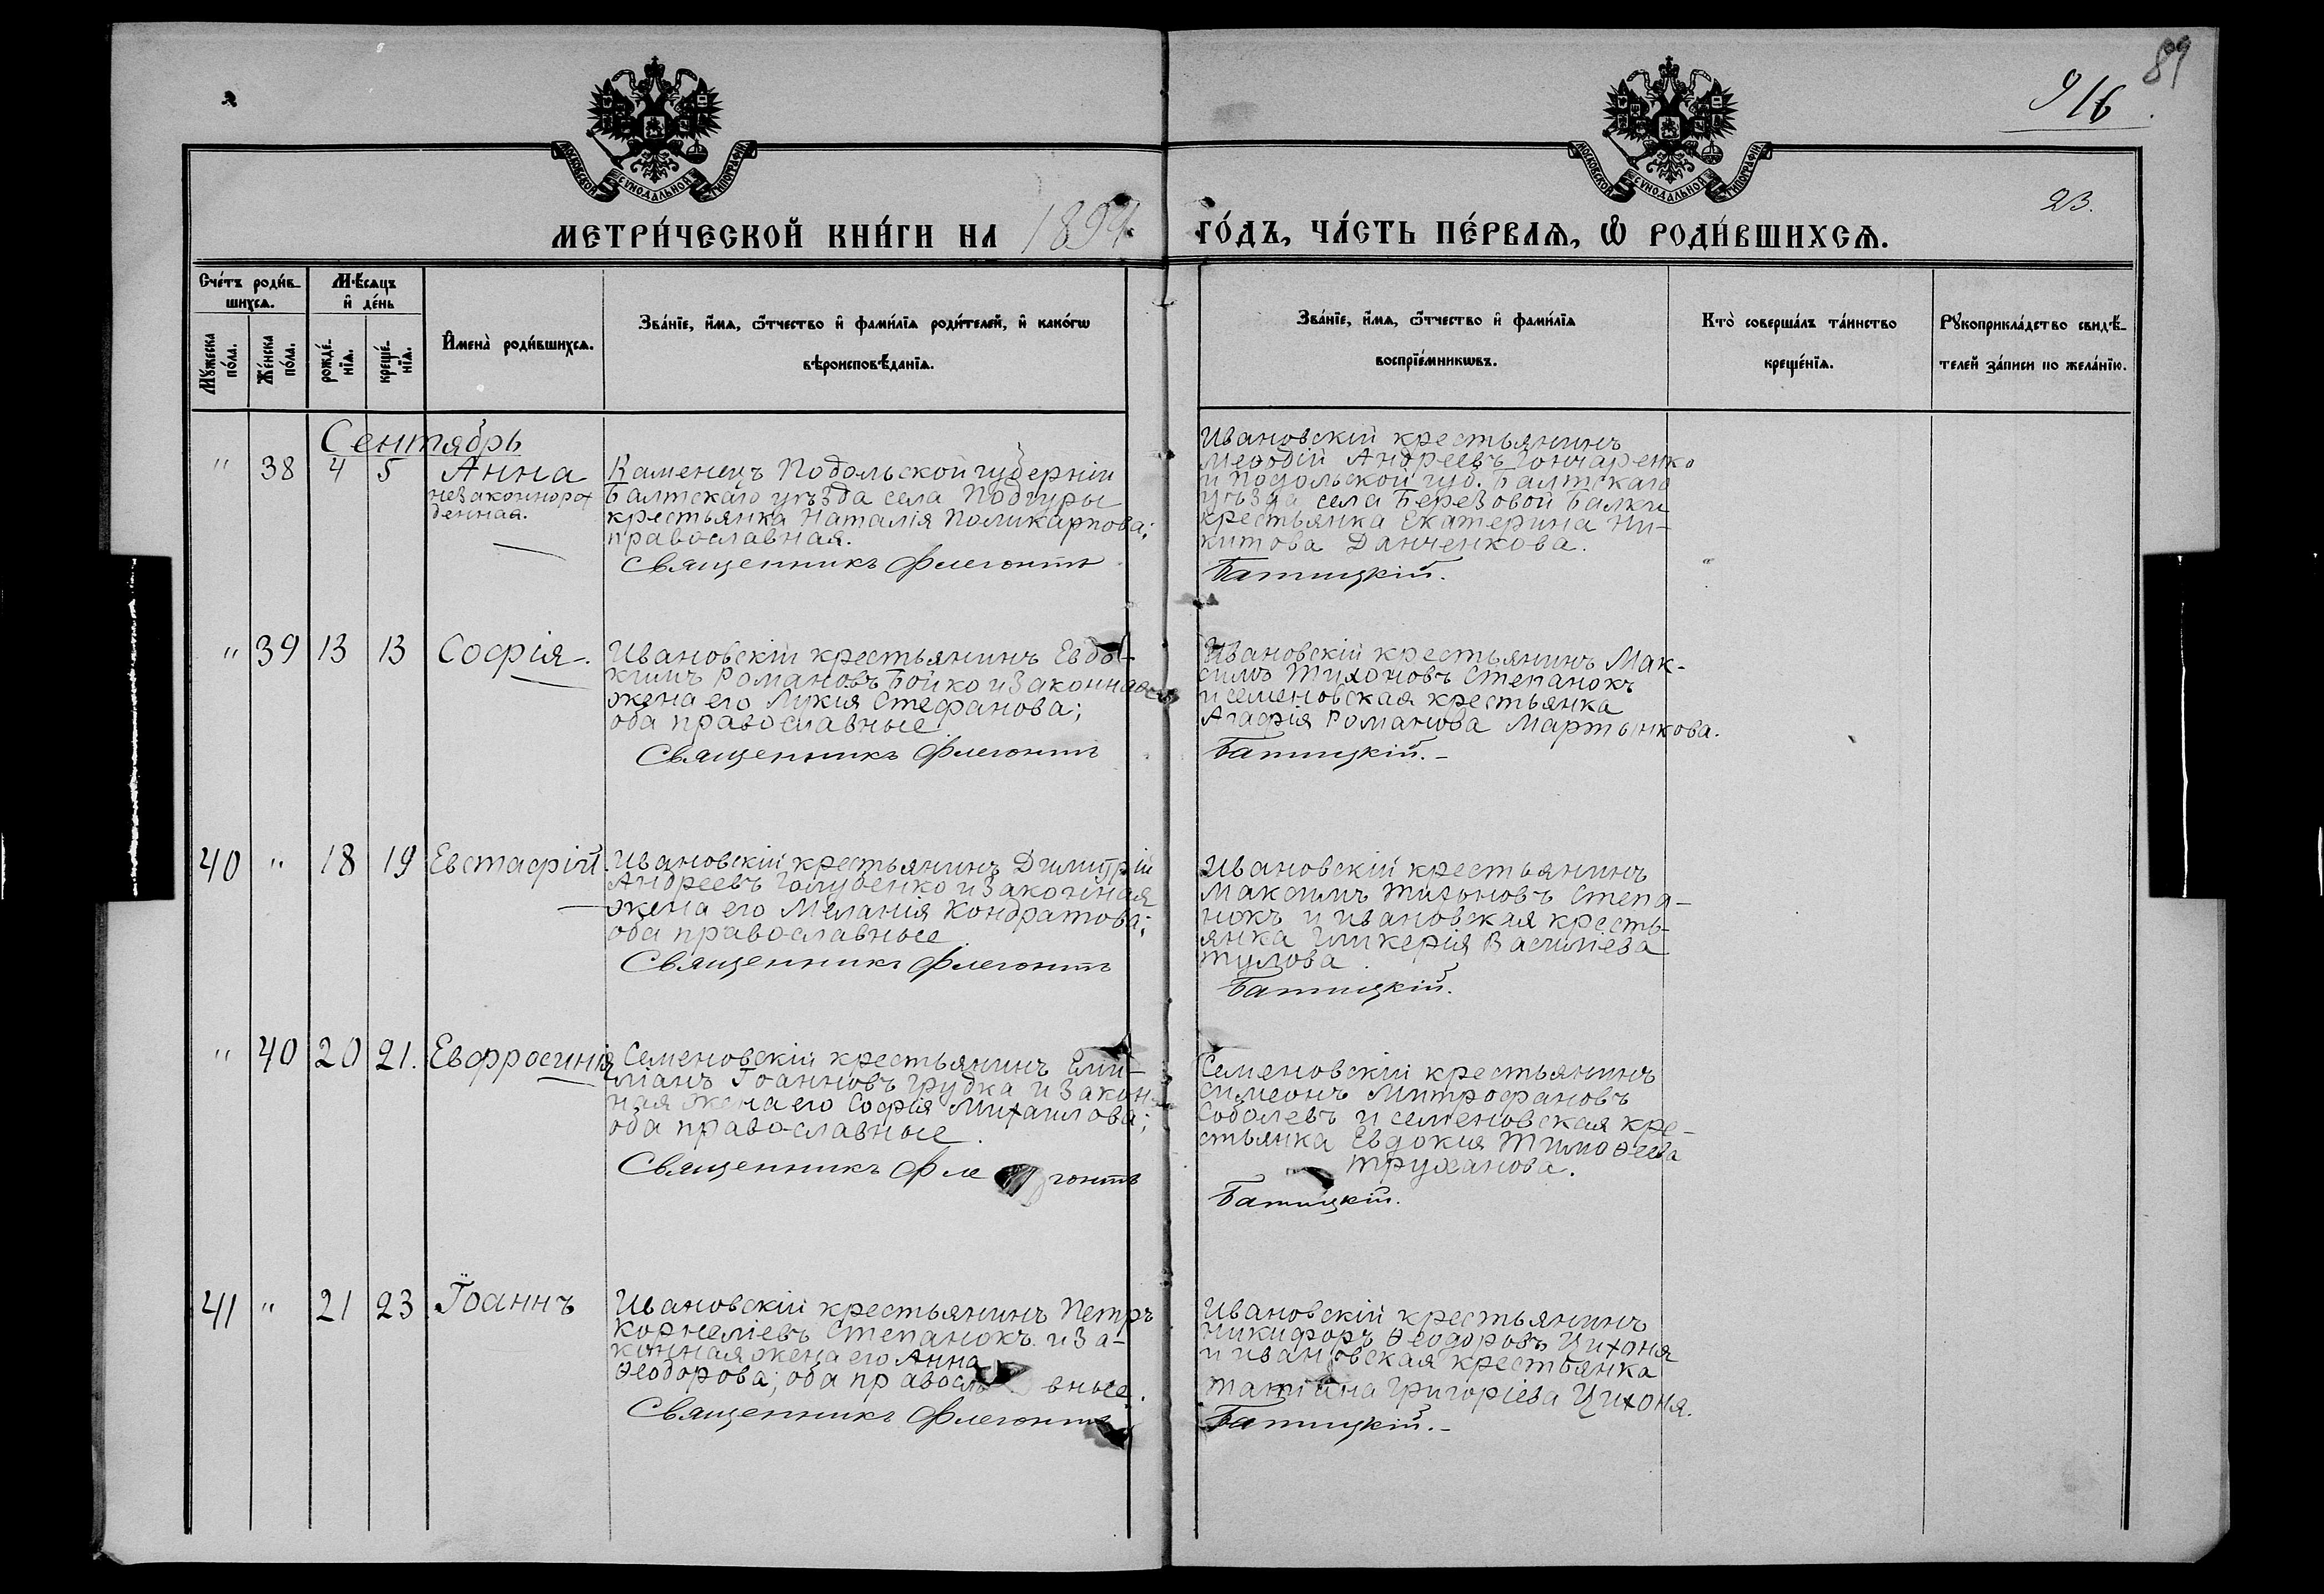 89
916
23.
МОСКОВСКОЙ СУНОДАЛЬНОЙ ТИПОГРАФІИ
МОСКОВСКОЙ СУНОДАЛЬНОЙ ТИПОГРАФІИ
МЕТРИ́ЧЕСКОЙ КНИ́ГИ НА 1894 ГО́ДЪ, ЧА́СТЬ ПЕ́РВАѦ, Ѽ РОДИ́ВШИХСѦ.
Сче́тъ роди́в-
шихсѧ.
Мꙋ́жеска по́ла.
Же́нска по́ла.
Мѣ́сѧцъ
и҆ де́нь
рожде́-
нїѧ.
креще́-
нїѧ.
И҆мена̀ роди́вшихсѧ.
Зва́нїе, и҆́мѧ, ѻ҆́тчество и҆ фами́лїѧ роди́телей, и҆ како́гѡ
вѣроисповѣ́данїѧ.
Зва́нїе, и҆́мѧ, ѻ҆́тчество и҆ фами́лїѧ
воспрїе́мникѡвъ.
Кто̀ соверша́лъ та́инство
креще́нїѧ.
Рꙋкоприкла́дство свидѣ́-
телей за́писи по жела́нїю.
Сентябрь
" 38 4 5 Анна
незаконнорож
денная.
Каменецъ Подольской губерніи
Балтскаго уѣзда села Подгуры
крестьянка Наталія Поликарпова;
православная.
Священникъ Флегонтъ
Ивановскій крестьянинъ
Меѳодій Андреевъ Гончаренко
и Подольской губ. Балтскаго
уѣзда села Березовой Балки
крестьянка Екатерина Ни-
китова Данченкова.
Батицкій.
" 39 13 13 Софія.
Ивановскій крестьянинъ Евдо-
кимъ Романовъ Бойко и законная
жена его Лукія Стефанова;
оба православные.
Священникъ Флегонтъ
Ивановскій крестьянинъ Мак-
симъ Тихоновъ Степанокъ
и семеновская крестьянка
Агафія Романова Мартынкова.
Батицкій.-
40 " 18 19 Евстафій.
Ивановскій крестьянинъ Димитрій
Андреевъ Голубенко и законная
жена его Меланія Кондратова;
оба православные.
Священникъ Флегонтъ
Ивановскій крестьянинъ
Максимъ Тихоновъ Степа-
нокъ и ивановская кресть-
янка Гликерія Василіева
Тулова.
Батицкій.
" 40 20 21. Евфросинія
Семеновскій крестьянинъ Еми-
ліанъ Іоанновъ Грудка и закон-
ная жена его Софія Михаилова;
оба православные.
Священникъ Флегонтъ
Семеновскій крестьянинъ
Симеонъ Митрофановъ
Соболевъ и семеновская кре-
стьянка Евдокия Тимоѳеева
Труханова.
Батицкій.
41 " 21 23 Іоаннъ
Ивановскій крестьянинъ Петръ
Корнеліевъ Степанокъ и за-
конная жена его Анна
Ѳеодорова; оба православные.
Священникъ Флегонтъ
Ивановскій крестьянинъ
Никифоръ Ѳеодоровъ Цихоня
и ивановская крестьянка
Татіана Григоріева Цихоня.
Батицкій.-